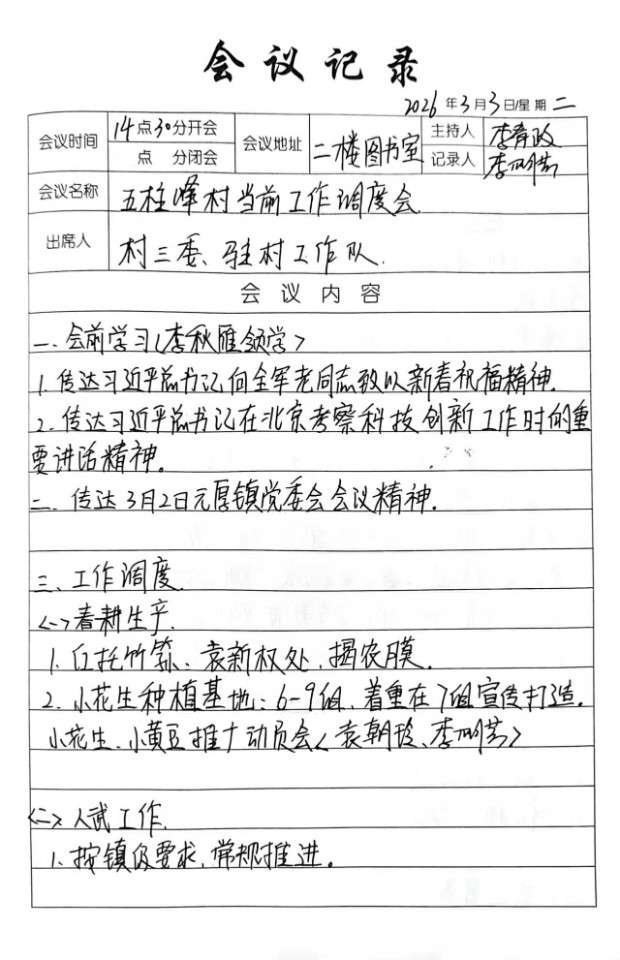 会议记录
2026年3月3日/星期二
会议时间 14点30分开会 会议地址 二楼图书室 主持人 李春政
点 分闭会 记录人 李明芸
会议名称 五柱峰村当前工作调度会
出席人 村三委、驻村工作队.
会议内容
一.会前学习(李秋雁领学>
1.传达习近平总书记向全军老同志致以新春祝福精神.
2.传达习近平总书记在北京考察科技创新工作时的重
要讲话精神。
二.传达3月2日元厚镇党委会会议精神.
三、工作调度.
<一>春耕生产.
1.白托竹荪:袁新权处,揭农膜.
2.小花生种植基地:6-9组,着重在7组宣传打造.
小花生、小黄豆推广动员会<袁朝玲、李明芸>
<二>人武工作.
1.按镇级要求,常规推进。